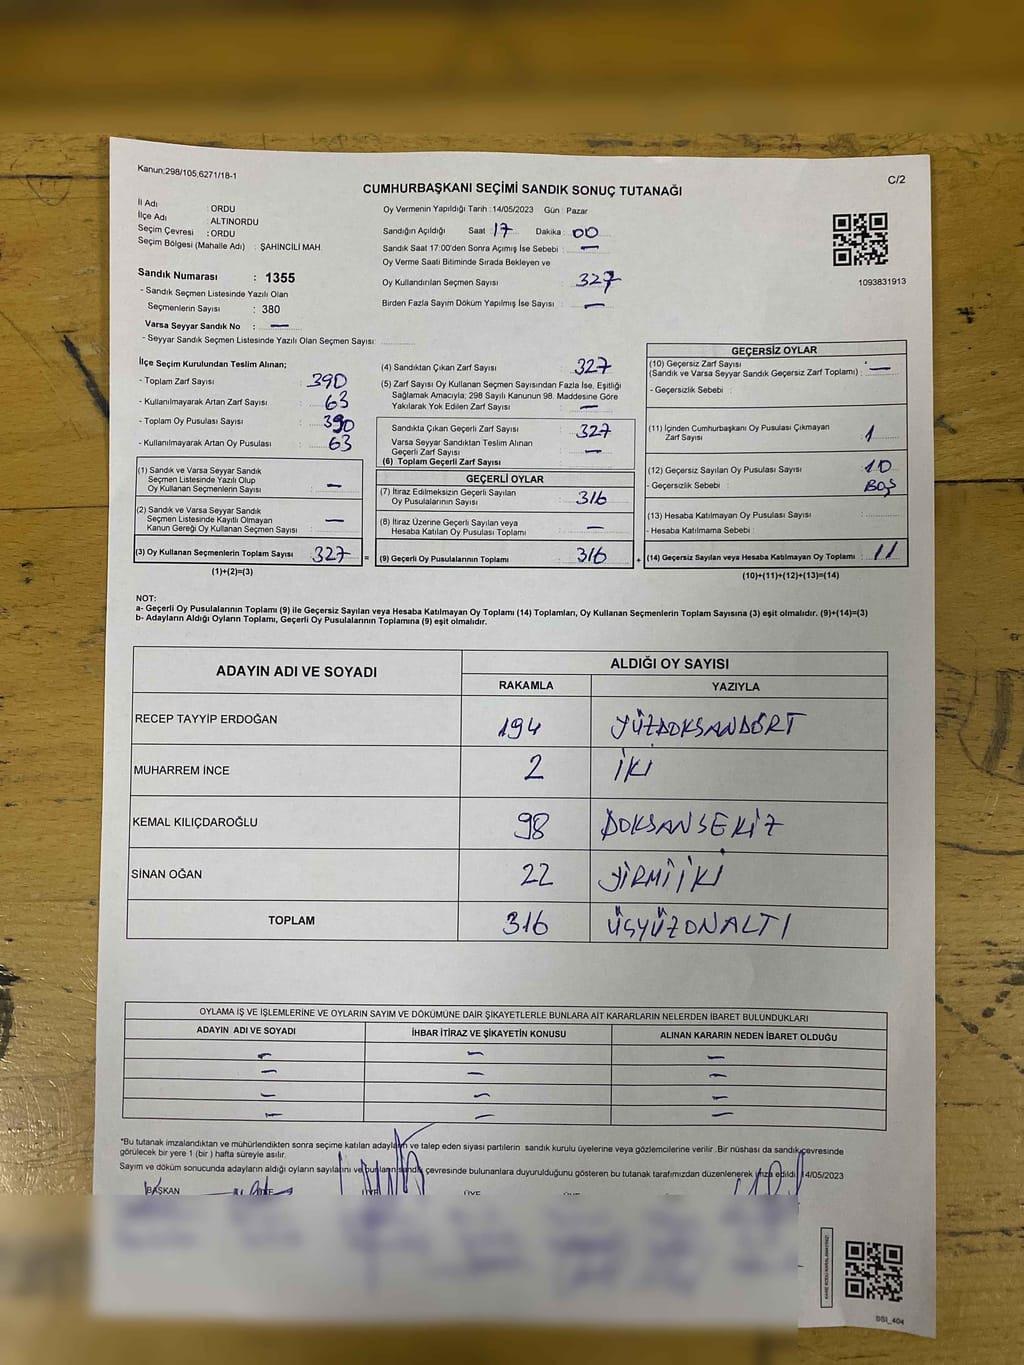 Kanun:298/105,6271/18-1
C/2
CUMHURBAŞKANI SEÇİMİ SANDIK SONUÇ TUTANAĞI
İl Adı : ORDU
İlçe Adı : ALTINORDU
Seçim Çevresi : ORDU
Seçim Bölgesi (Mahalle Adı) : ŞAHİNCİLİ MAH.
Sandık Numarası : 1355
- Sandık Seçmen Listesinde Yazılı Olan
Seçmenlerin Sayısı : 380
Varsa Seyyar Sandık No : —
- Seyyar Sandık Seçmen Listesinde Yazılı Olan Seçmen Sayısı:
Oy Vermenin Yapıldığı Tarih :14/05/2023 Gün : Pazar
Sandığın Açıldığı Saat 17 Dakika : 00
Sandık Saat 17:00'den Sonra Açımış İse Sebebi : —
Oy Verme Saati Bitiminde Sırada Bekleyen ve
Oy Kullandırılan Seçmen Sayısı : 327
Birden Fazla Sayım Döküm Yapılmış İse Sayısı : —
1093831913
İlçe Seçim Kurulundan Teslim Alınan;
- Toplam Zarf Sayısı : 390
- Kullanılmayarak Artan Zarf Sayısı : 63
- Toplam Oy Pusulası Sayısı : 390
- Kullanılmayarak Artan Oy Pusulası : 63
(1) Sandık ve Varsa Seyyar Sandık
Seçmen Listesinde Yazılı Olup
Oy Kullanan Seçmenlerin Sayısı : —
(2) Sandık ve Varsa Seyyar Sandık
Seçmen Listesinde Kayıtlı Olmayan
Kanun Gereği Oy Kullanan Seçmen Sayısı : —
(3) Oy Kullanan Seçmenlerin Toplam Sayısı : 327 =
(1)+(2)=(3)
(4) Sandıktan Çıkan Zarf Sayısı : 327
(5) Zarf Sayısı Oy Kullanan Seçmen Sayısından Fazla İse, Eşitliği
Sağlamak Amacıyla; 298 Sayılı Kanunun 98. Maddesine Göre
Yakılarak Yok Edilen Zarf Sayısı : —
Sandıkta Çıkan Geçerli Zarf Sayısı : 327
Varsa Seyyar Sandıktan Teslim Alınan
Geçerli Zarf Sayısı : —
(6) Toplam Geçerli Zarf Sayısı :
GEÇERLİ OYLAR
(7) İtiraz Edilmeksizin Geçerli Sayılan
Oy Pusulalarının Sayısı : 316
(8) İtiraz Üzerine Geçerli Sayılan veya
Hesaba Katılan Oy Pusulası Toplamı : —
(9) Geçerli Oy Pusulalarının Toplamı : 316 +
GEÇERSİZ OYLAR
(10) Geçersiz Zarf Sayısı
(Sandık ve Varsa Seyyar Sandık Geçersiz Zarf Toplamı) : —
- Geçersizlik Sebebi :
(11) İçinden Cumhurbaşkanı Oy Pusulası Çıkmayan
Zarf Sayısı : 1
(12) Geçersiz Sayılan Oy Pusulası Sayısı : 10
- Geçersizlik Sebebi : BOŞ
(13) Hesaba Katılmayan Oy Pusulası Sayısı :
- Hesaba Katılmama Sebebi :
(14) Geçersiz Sayılan veya Hesaba Katılmayan Oy Toplamı : 11
(10)+(11)+(12)+(13)=(14)
NOT:
a- Geçerli Oy Pusulalarının Toplamı (9) ile Geçersiz Sayılan veya Hesaba Katılmayan Oy Toplamı (14) Toplamları, Oy Kullanan Seçmenlerin Toplam Sayısına (3) eşit olmalıdır. (9)+(14)=(3)
b- Adayların Aldığı Oyların Toplamı, Geçerli Oy Pusulalarının Toplamına (9) eşit olmalıdır.
ADAYIN ADI VE SOYADI ALDIĞI OY SAYISI
RAKAMLA YAZIYLA
RECEP TAYYİP ERDOĞAN 194 YÜZDOKSANDÖRT
MUHARREM İNCE 2 İKİ
KEMAL KILIÇDAROĞLU 98 DOKSANSEKİZ
SİNAN OĞAN 22 YİRMİİKİ
TOPLAM 316 ÜÇYÜZONALTI
OYLAMA İŞ VE İŞLEMLERİNE VE OYLARIN SAYIM VE DÖKÜMÜNE DAİR ŞİKAYETLERLE BUNLARA AİT KARARLARIN NELERDEN İBARET BULUNDUKLARI
ADAYIN ADI VE SOYADI İHBAR İTİRAZ VE ŞİKAYETİN KONUSU ALINAN KARARIN NEDEN İBARET OLDUĞU
— — —
— — —
— — —
— — —
*Bu tutanak imzalandıktan ve mühürlendikten sonra seçime katılan adayların ve talep eden siyasi partilerin sandık kurulu üyelerine veya gözlemcilerine verilir .Bir nüshası da sandık çevresinde
görülecek bir yere 1 (bir ) hafta süreyle asılır.
Sayım ve döküm sonucunda adayların aldığı oyların sayılarını ve bunların sandık çevresinde bulunanlara duyurulduğunu gösteren bu tutanak tarafımızdan düzenlenerek imza edildi. 14/05/2023
BAŞKAN ÜYE ÜYE ÜYE
SSI_404